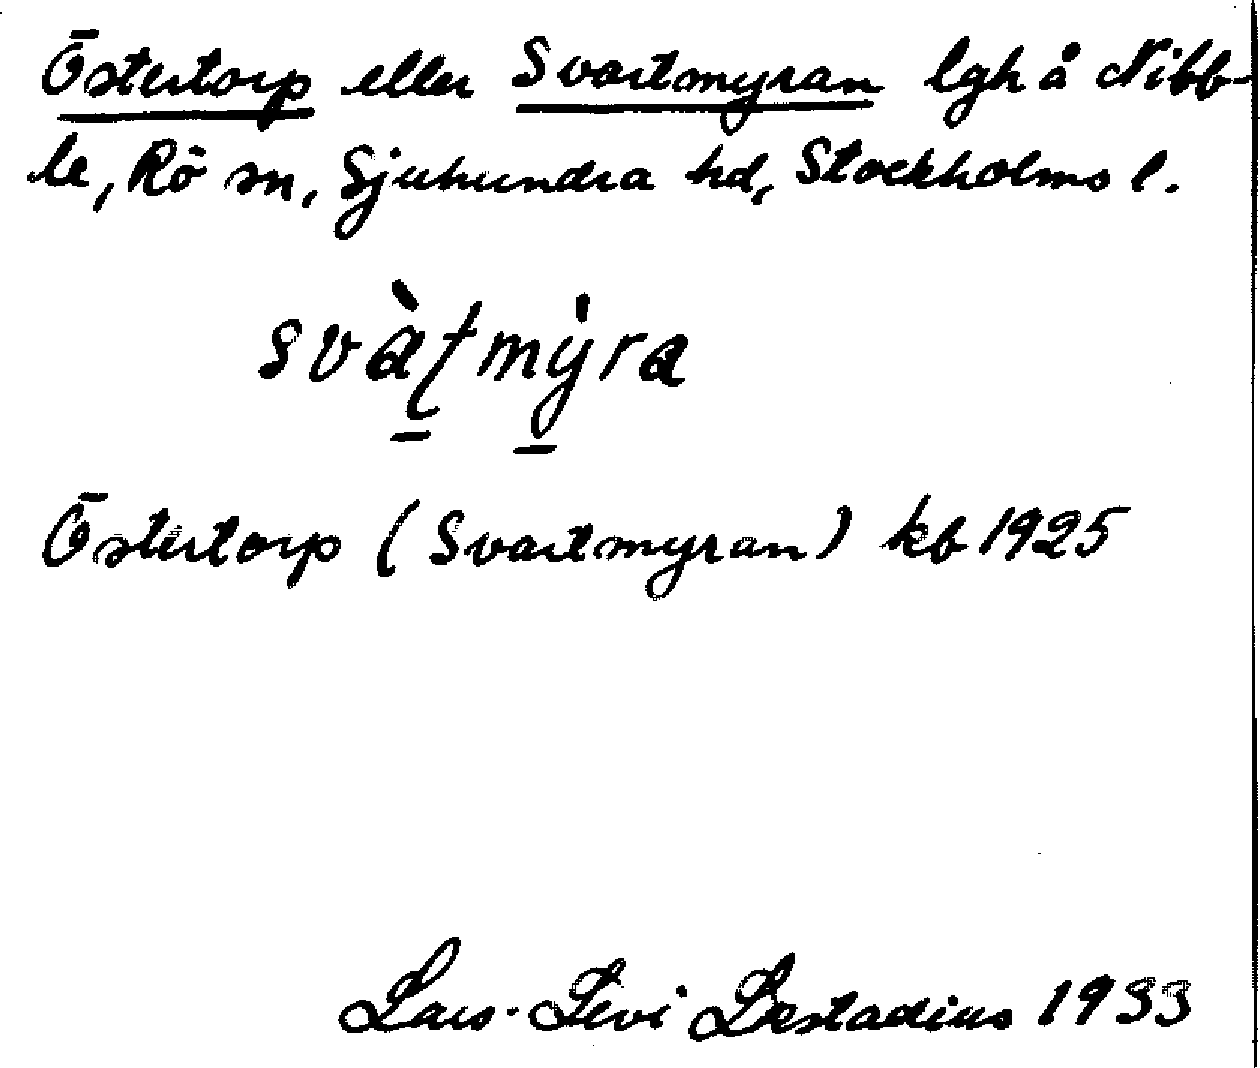 Östertorp eller Svartmyran lgh å Nibb-
le, Rö sn, Sjuhundra hd, Stockholms l.
svàʈmy̍ra
Östertorp (Svartmyran) kb 1925
Lars-Levi Læstadius 1933